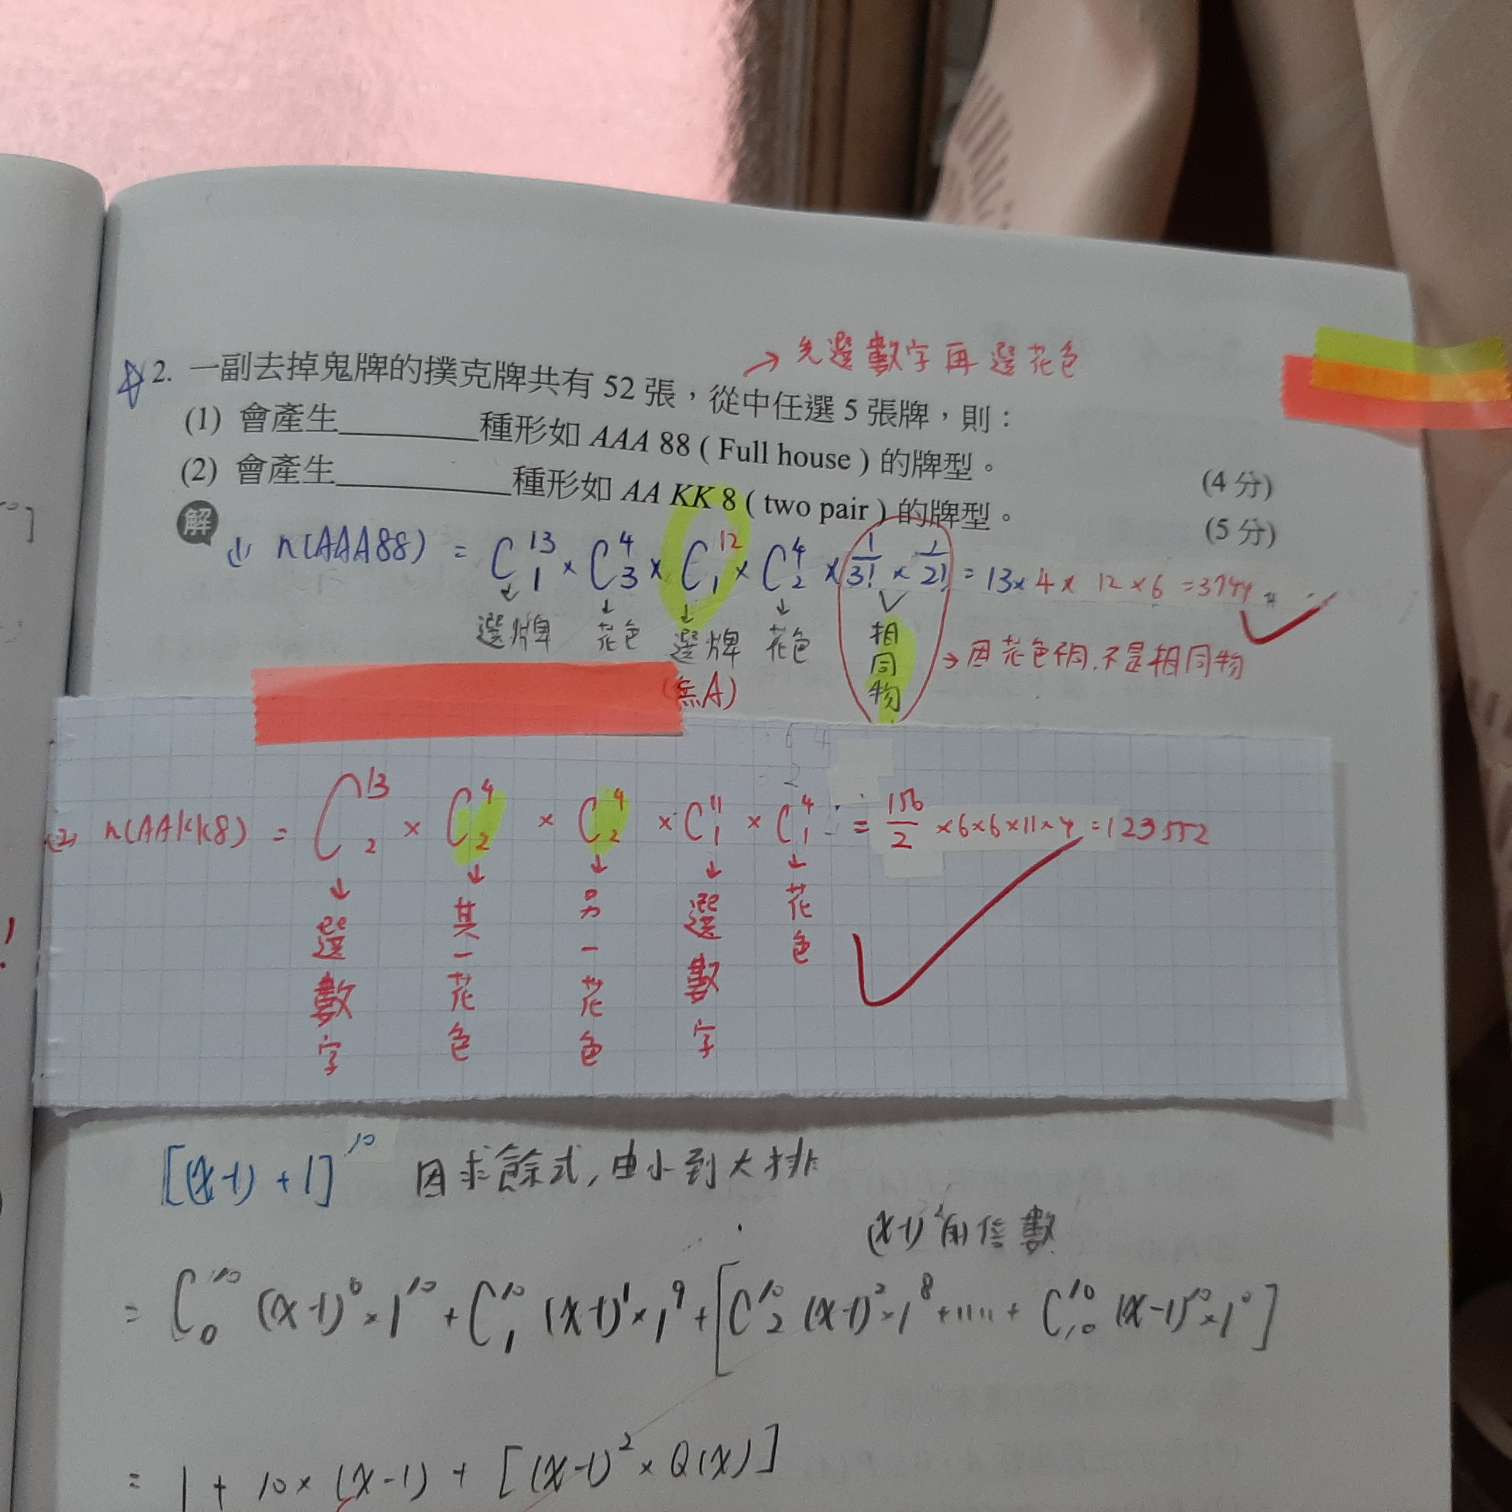 →先選數字再選花色
2. 一副去掉鬼牌的撲克牌共有 52 張，從中任選 5 張牌，則：
(1) 會產生________種形如 AAA 88 ( Full house ) 的牌型。 (4 分)
(2) 會產生__________種形如 AA KK 8 ( two pair ) 的牌型。 (5 分)
解
(1) n(AAA88) = C¹³₁ × C⁴₃ × C¹²₁ × C⁴₂ × 1/3! × 1/2! = 13×4×12×6 = 3744
↓選牌 ↓花色 ↓選牌 (無A) ↓花色 相同物 →因花色不同,不是相同物
(2) n(AAKK8) = C¹³₂ × C⁴₂ × C⁴₂ × C¹¹₁ × C⁴₁ = 156/2 ×6×6×11×4 = 123552
↓選數字 ↓其一花色 ↓另一花色 ↓選數字 ↓花色
[(x-1)+1]¹⁰ 因求餘式,由小到大排
(x-1)²的倍數
= C¹⁰₀ (x-1)⁰×1¹⁰ + C¹⁰₁ (x-1)¹×1⁹ + [C¹⁰₂ (x-1)²×1⁸ +·····+ C¹⁰₁₀ (x-1)¹⁰×1⁰]
= 1 + 10×(x-1) + [(x-1)² × Q(x)]